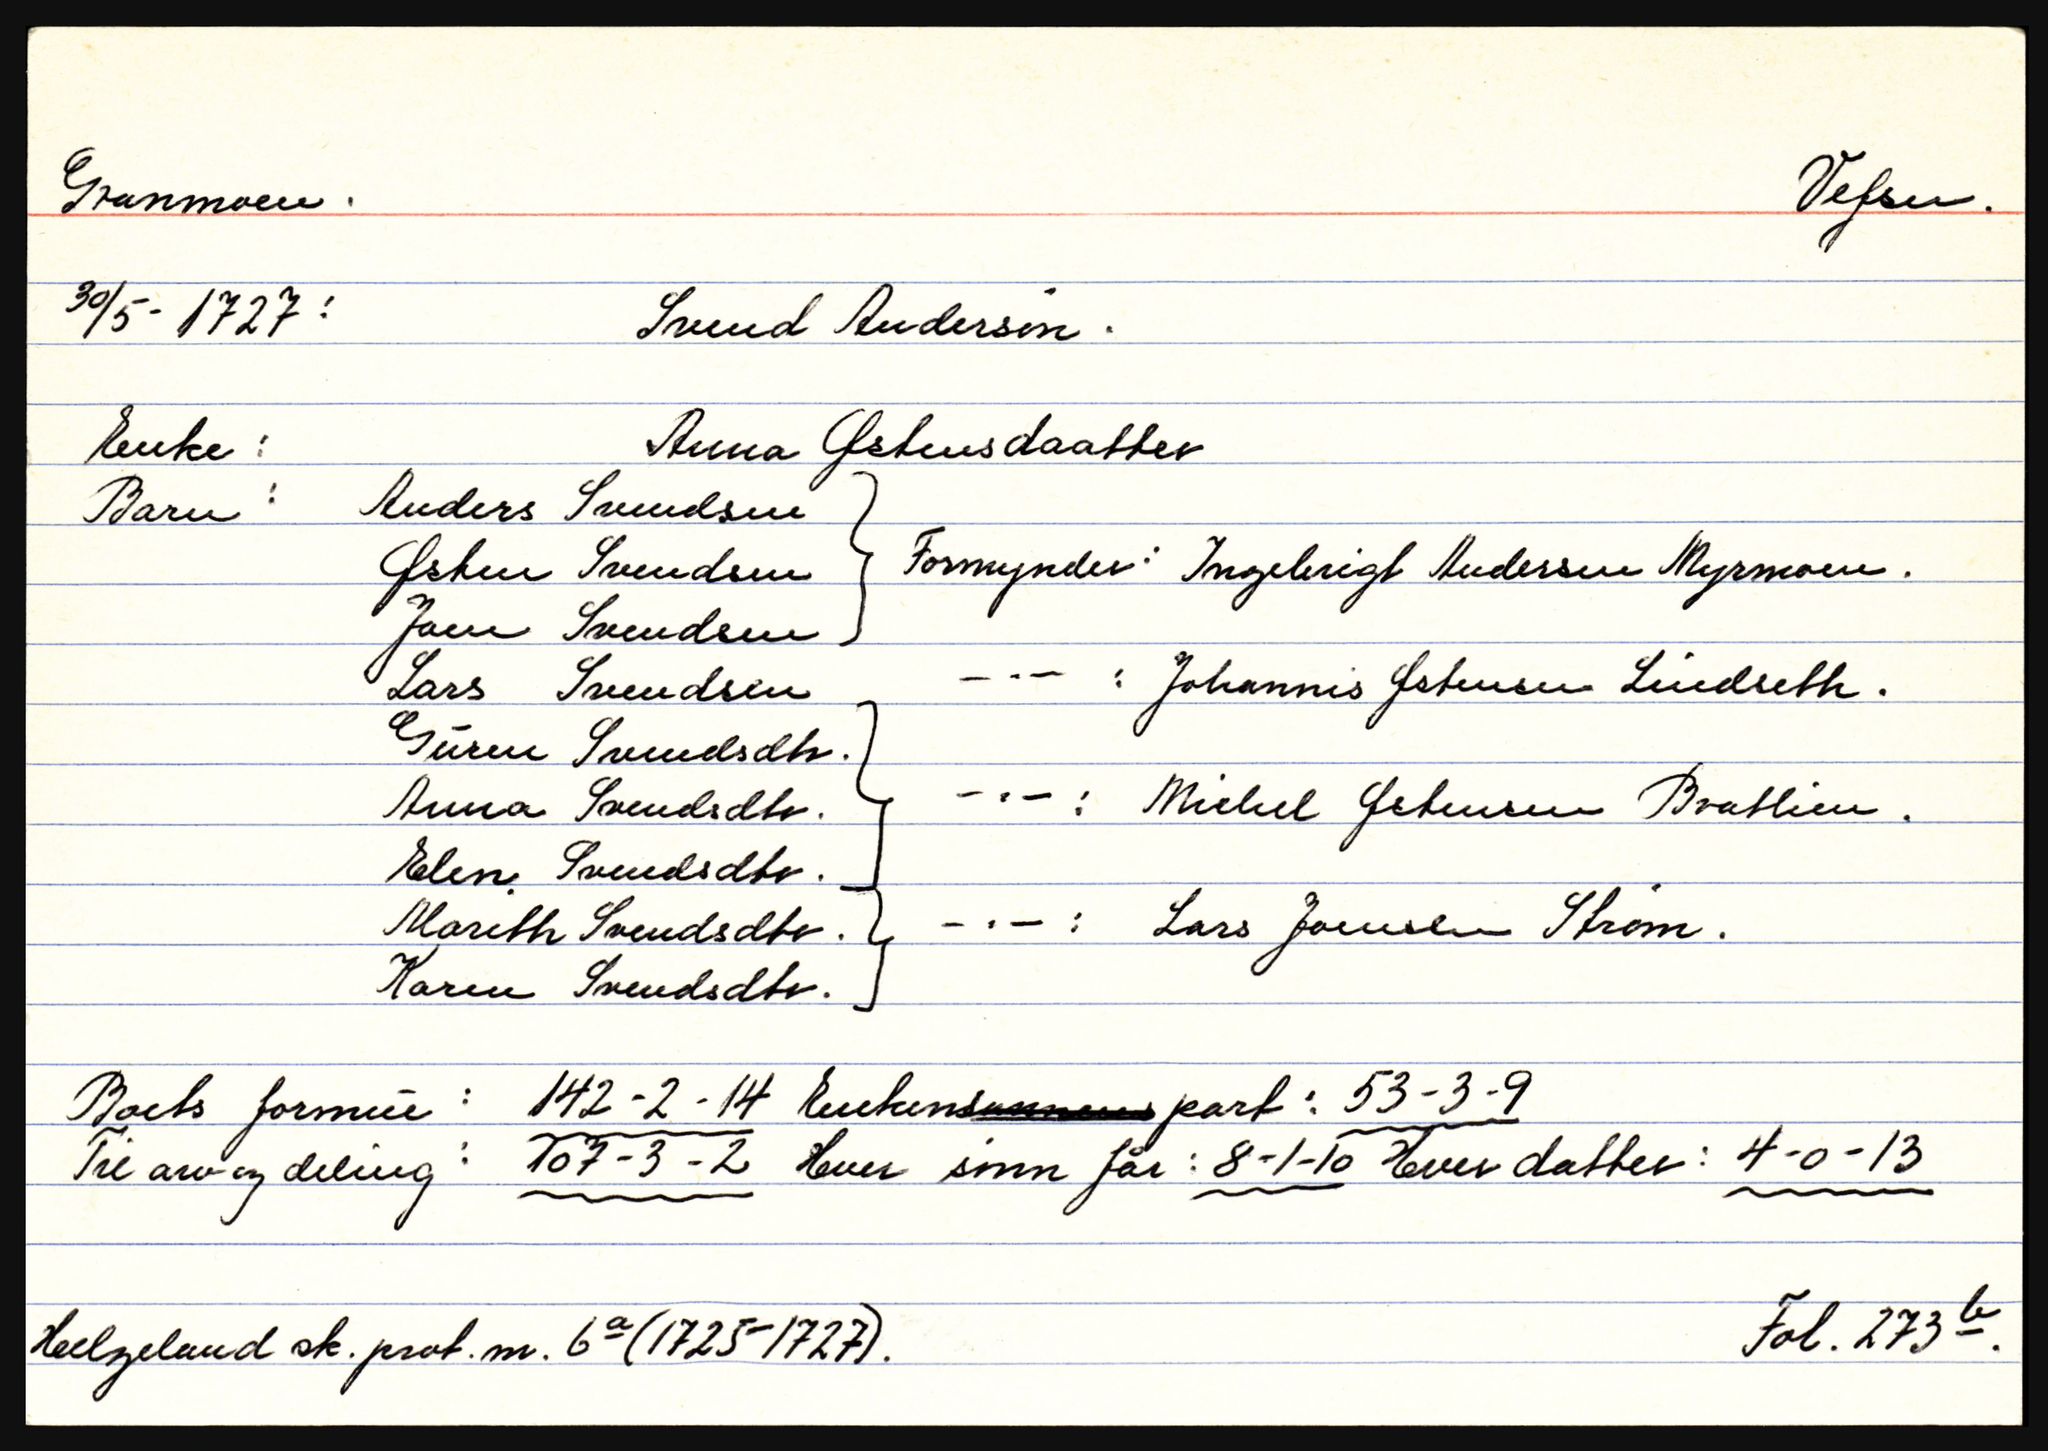 Granmoen. Vefsn.
30/5- 1727: Svend Andersön.
Enke: Anna Østensdaatter
Barn: Anders Svendsen
Østen Svendsen Formynder: Ingebrigt Andersen Myrmoen.
Joen Svendsen
Lars Svendsen -"- : Johannis Østensen Lindseth.
Gùren Svendsdtr.
Anna Svendsdtr. -"- : Michel Østensen Brattlien.
Elen Svendsdtr.
Marith Svendsdtr. -"- : Lars Joensen Strøm.
Karen Svendsdtr.
Boets formùe: 142-2-14 Enkens part: 53-3-9
Til arv og deling: 107-3-2 Hver sønn får: 8-1-10 Hver datter: 4-0-13
Helgeland sk. prot. nr. 6a (1725-1727). Fol. 273b.